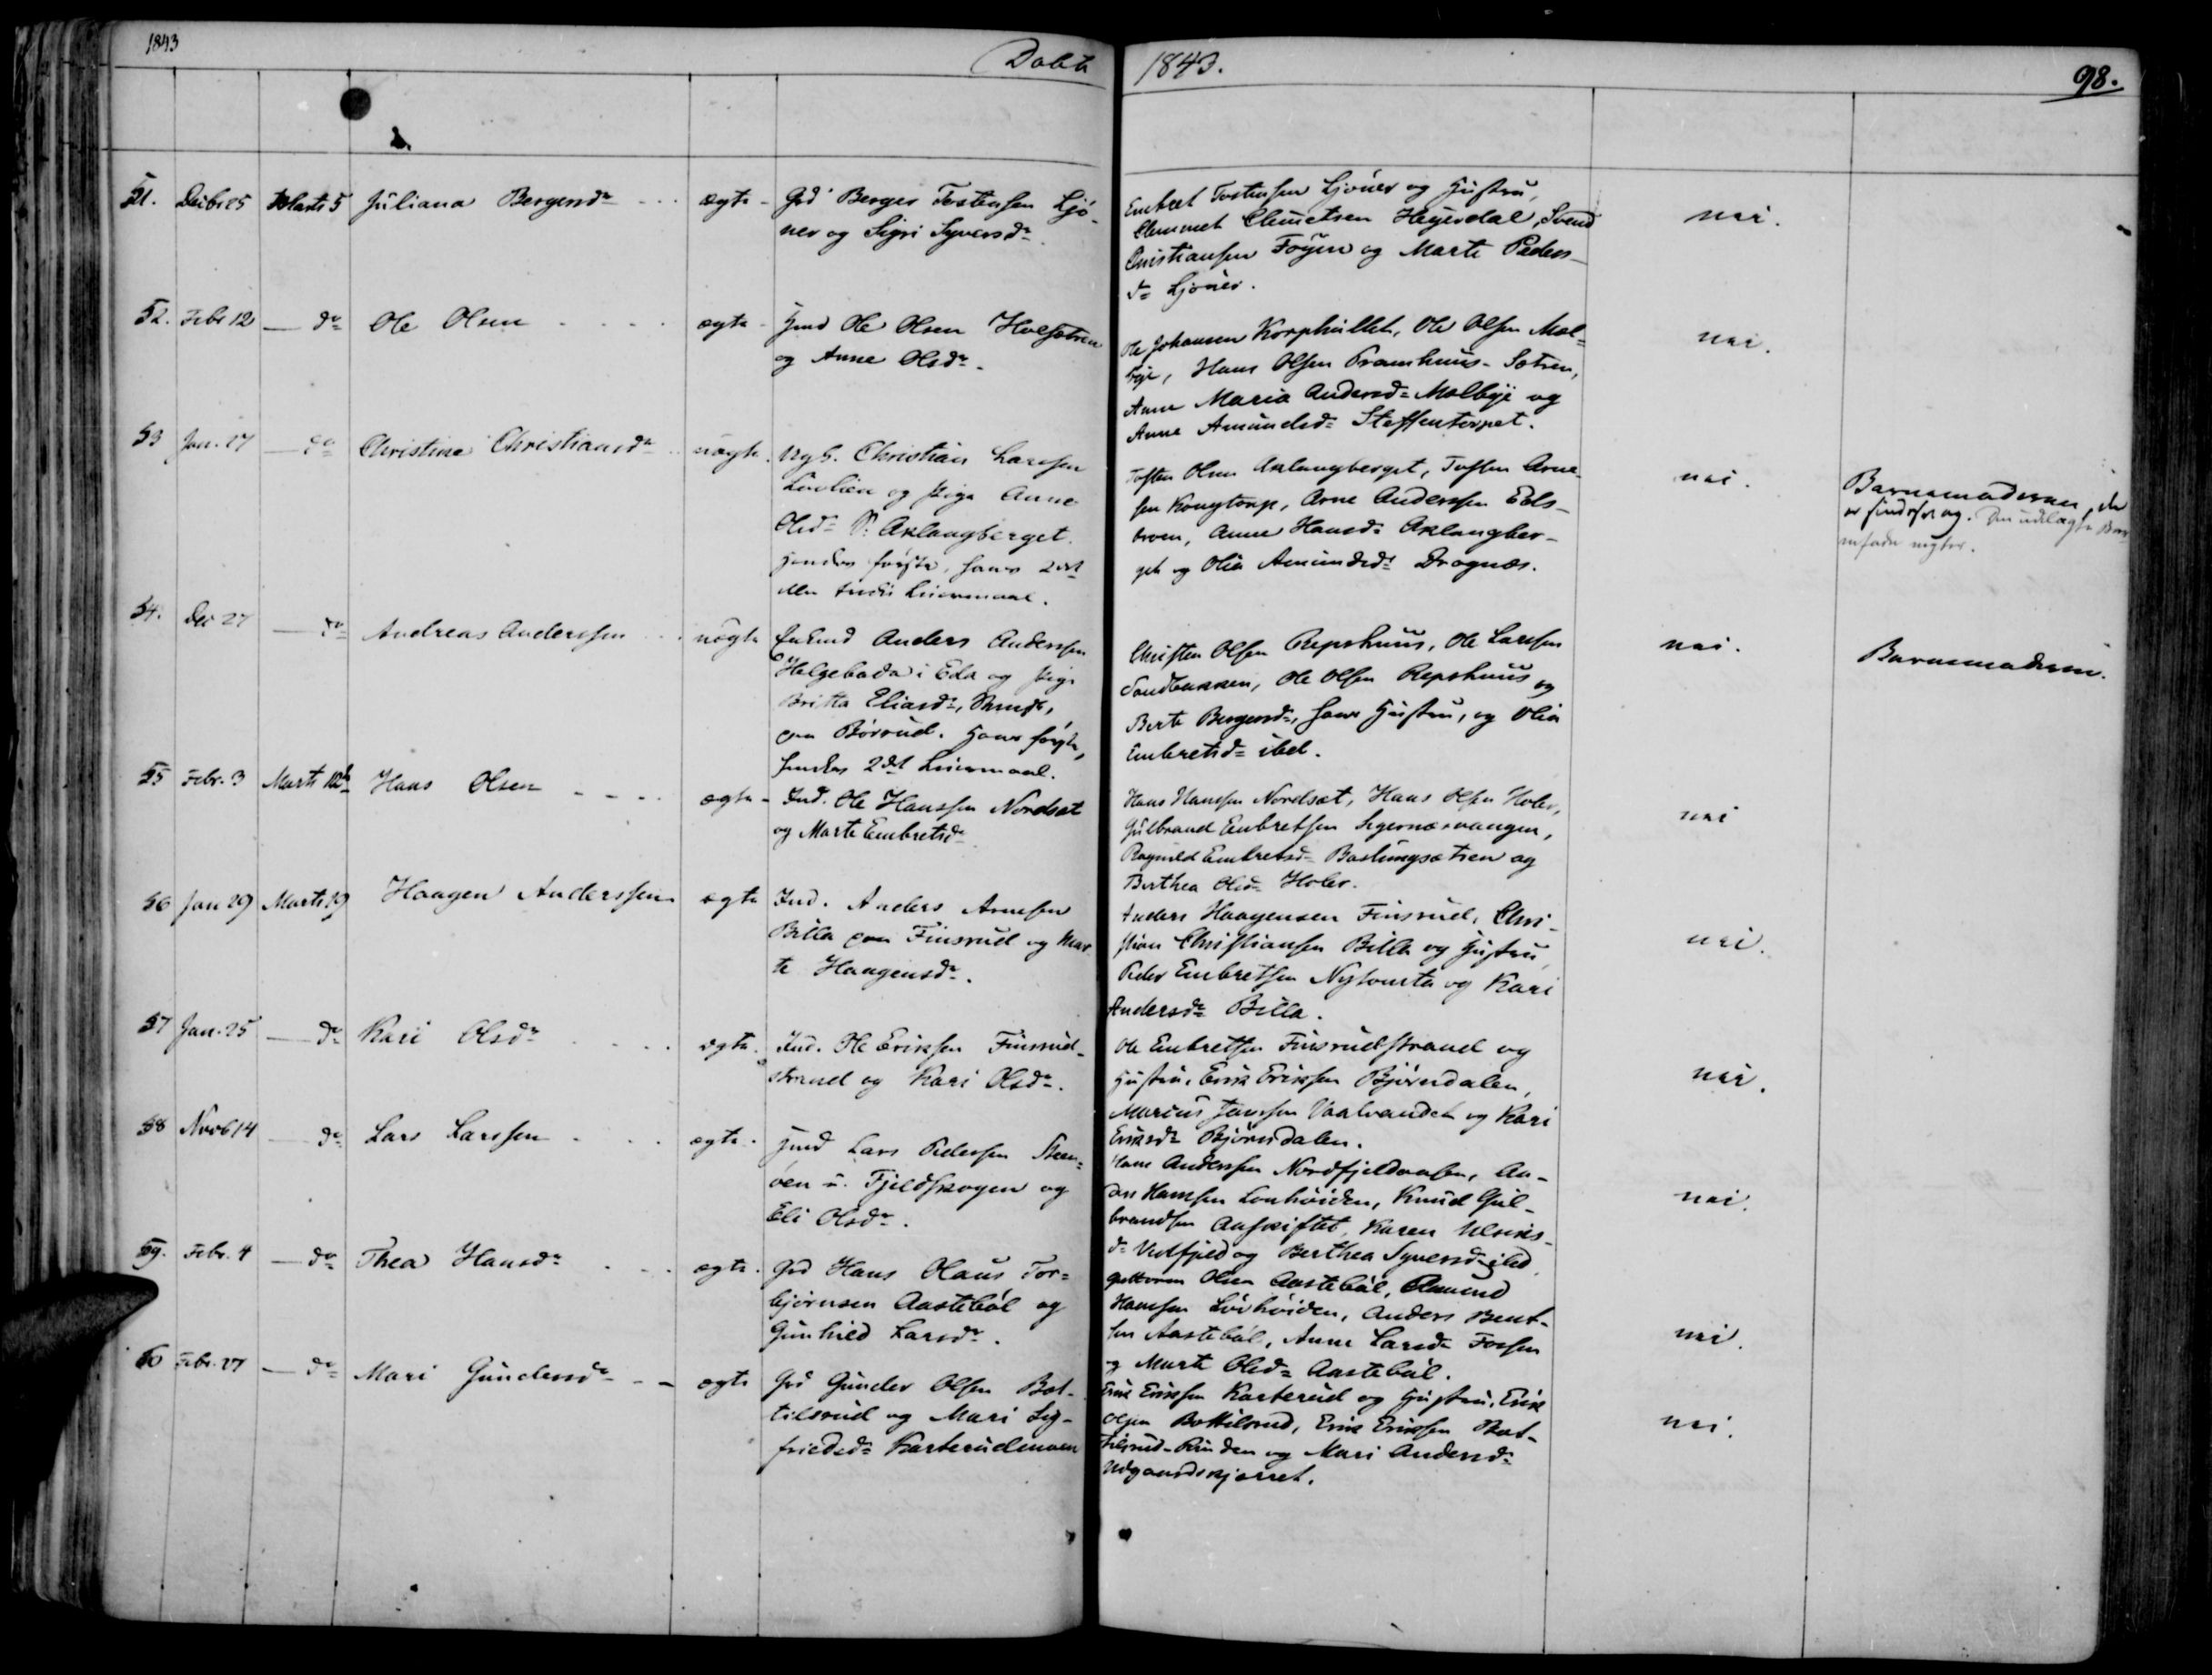 1843
Døbte 1843.
98.
51. Decbr 25 Marts 5 Juliana Bergersdr - - - ægte - Grd Berger Tostensen Ljø-
ner og Sigri Syversdr.
Embret Tostensen Ljøner og Hustru,
Clemmet Clemetsen Heyerdal, Svend
Christiansen Føyen og Marte Peders-
dr Ljøner.
nei.
52. Febr 12 — do Ole Olsen - - - - ægte - Hmd Ole Olsen
og Anne Olsdr.
Ole Johansen Korphullet, Ole Olsen Mal-
bye, Hans Olsen Framhuus-Sætren,
Anne Maria Andersdr Malbye og
Anne Amundsdr Steffentorpet.
nei.
53 Jan. 27 — do Christine Christiansdr - uægte. Ung. Christian Larssen
og Pige Anne
Olsdr Aklangberget.
Hendes første, hans 2det
eller tredie Leiermaal.
Tosten Olsen Aklangberget, Tosten Arne-
sen Kongtorp, Arne Anderssen Eds-
broen, Anne Hansdr Aklangber-
get og Olia Amundsdr Dragnæs.
nei.
Barnemoderen, der
er sindssvag. Den udlagte Bar-
nefader negter.
54. Dec 27 — do Andreas Anderssen - - uægte Enkmd Anders Anderssen
Helgeboda i Eda og Pige
Britta Eliasdr,
paa Børrud. Hans første,
hendes 2det Leiermaal.
Christen Olsen Repshuus, Ole Larssen
Sandbakken, Ole Olsen Repshuus og
Berte Bergersdr, hans Hustru, og Olia
Embretsdr ibd.
nei.
Barnemoderen.
55 Febr. 3 Marts 12 Hans Olsen - - - - ægte - Ind. Ole Hanssen Nordsæt
og Marte Embretsdr
Hans Hansen Nordsæt, Hans Olsen Holer,
Gulbrand Embretsen Sigernæsvangen,
Ragnild Embretsdr Baslungsætren og
Berthea Olsdr Holer.
nei
56 Jan 29 Marts 19 Haagen Anderssen ægte Ind. Anders Arnesen
Billa paa Finsrud og Mar-
te Haagensdr.
Anders Haagensen Finsrud, Chri-
stian Christiansen Billa og Hustru,
Peder Embretsen Nytomta og Kari
Andersdr Billa.
nei.
57 Jan. 25 — do Kari Olsdr - - - - ægte. Ind. Ole Eriksen Finsrud-
strand og Kari Olsdr.
Ole Embretsen Finsrudstrand og
Hustru, Erik Eriksen Bjørndalen,
Marius Janssen Vaalvandet og Kari
Eriksdr Bjørndalen.
nei.
58 Novb 14 — do Lars Larssen - - - ægte. Hmd Lars Pedersen Steen-
oen u. Fjeldskogen og
Eli Olsdr.
Hans Anderssen Nordfjeldaasen, An-
ders Hanssen Lonhøiden, Knud Gul-
brandsen Aaskiftet, Karen Ulriks-
dr Vestfjeld og Berthea Syversdr ibd.
nei.
59. Febr. 4 — do Thea Hansdr - - - ægte. Grd Hans Olaus Tor-
bjørnsen Aastebøl og
Gunhild Larsdr.
Guttorm Olsen Aastebøl, Amund
Hanssen Løvhøiden, Anders Bent-
sen Aastebøl, Anne Larsdr Fossen
og Marte Olsdr Aastebøl.
nei.
60 Febr. 27 — do Mari Gundersdr - - ægte Grd Gunder Olsen Bot-
tilsrud og Mari Sig-
friedsdr Karterudmoen
Erik Eriksen Karterud og Hustru, Erik
Olsen Bottilsrud, Erik Eriksen Bot-
tilsrud-Rønden og Mari Andersdr
Udgaardskjærret.
nei.